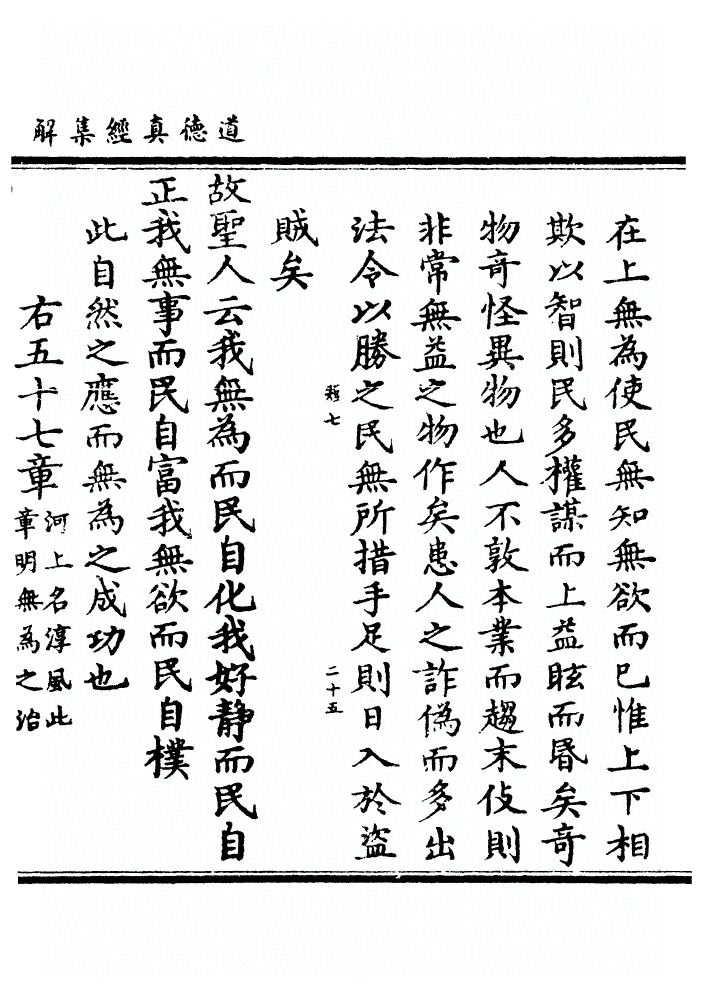 道德真經集解
在上無為使民無知無欲而已惟上下相
欺以智則民多權謀而上益眩而昬矣奇
物奇怪異物也人不敦本業而趨末伎則
非常無益之物作矣患人之詐偽而多出
法令以勝之民無所措手足則日入於盜
二十五
賊矣
故聖人云我無為而民自化我好靜而民自
正我無事而民自富我無欲而民自樸
此自然之應而無為之成功也
右五十七章
河上名淳風此
章明無為之治